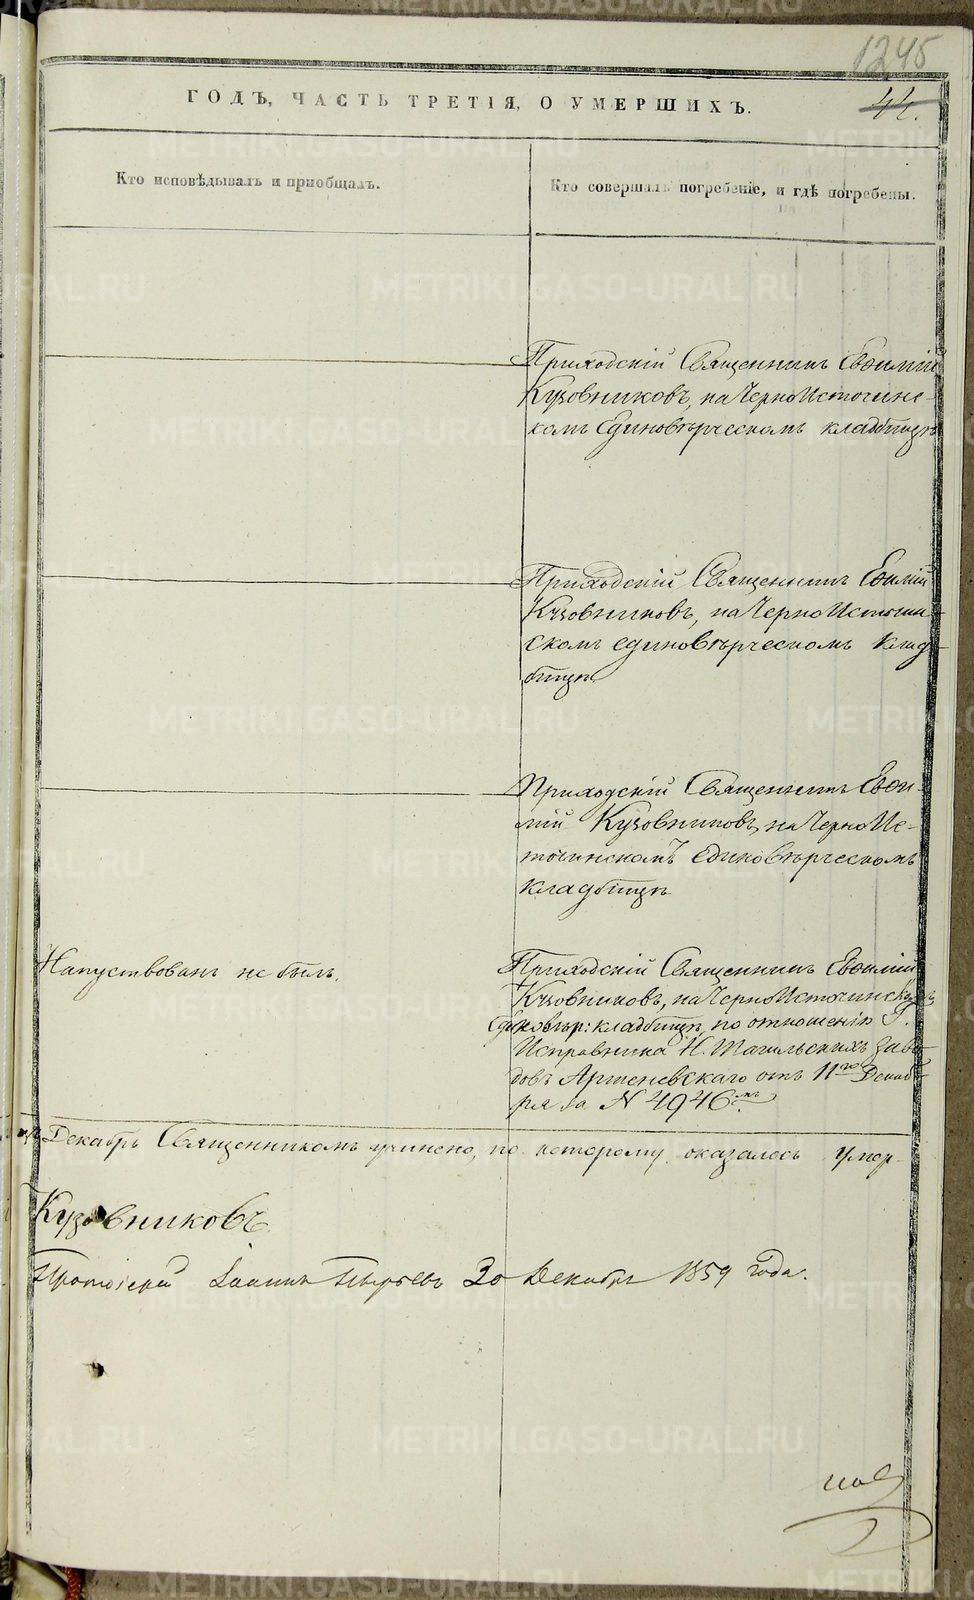 1245
44.
ГОДЪ, ЧАСТЬ ТРЕТІЯ, О УМЕРШИХЪ.
Кто исповѣдывалъ и пріобщалъ.
Кто совершалъ погребеніе, и гдѣ погребены.
Приходскій Священникъ Евѳимій
Кузовниковъ, на ЧерноИсточинс-
комъ Единовѣрческомъ кладбищѣ
Приходскій Священникъ Евѳимій
Кузовниковъ, на ЧерноИсточин-
скомъ единовѣрческомъ клад-
бищѣ
Приходскій Священникъ Евѳи-
мій Кузовниковъ, на ЧерноИс-
точинскомъ единовѣрческомъ
кладбищѣ
Напутствованъ не былъ.
Приходскій Священникъ Евѳимій
Кузовниковъ, на ЧерноИсточинскомъ
Единовѣр: кладбищѣ, по отношенію Г.
Исправника Н. Тагильскихъ Заво-
довъ Артеневскаго отъ 11го Декаб-
ря за N 4946мъ.
Декабрь Священникомъ учинено, по которому оказалось умер-
Кузовниковъ
Протоіерей Іоаннъ Пырьевъ 30 Декабря 1859 года.